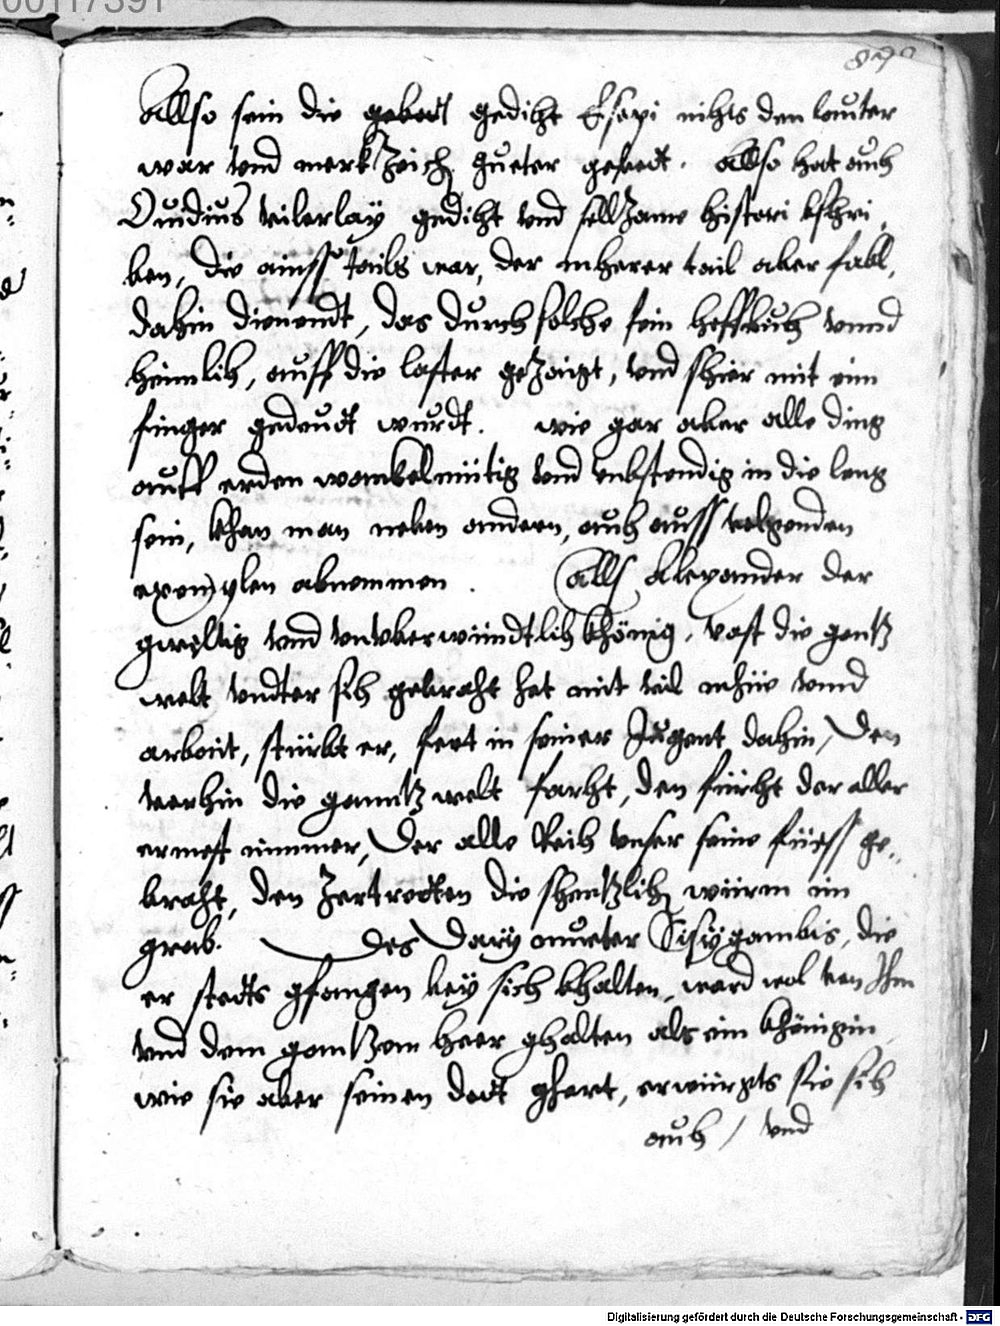 00117391
890
Allso sein die gebodt gedicht Esopi nichts den lauter
war vnd merkzeich gueter gebodt. Allso hat auch
Ouidius vilerlay gedicht vnd sellzame histori bschri,
ben, die ainss tails war, der mherer tail aber fabl,
dahin dienendt, das durch solche sein hofflich vnnd
heimlich, auff die laster gezaigt, vnd schier mit eim
finger gedeudt wurdt. wie gar aber alle ding
auff erden wankelmütig vnd vnbstendig in die leng
sein, khan man neben andern, auch auss volgenden
exemplen abnemmen. Alls Alexander der
gweltig vnd vnvberwündtlich khönig, vast die gantz
welt vndter sich gebracht hat mit vil mhüe vnnd
arbeit, stürbt er, fert in seiner Jugent dahin, Den
vorhin die ganntz welt forcht, den fürcht der aller
ermest nimmer, Der alle Reich vnser seine füess ge,,
bracht, den zertretten die schentzlich würm im
grab. Des Darÿ mueter Sisÿgambis, die
er stedts gfangen beÿ sich bhalten, ward wol von Ihm
vnd dem gantzem heer ghalten als ein khönigin,
wie sie aber seinen dodt ghört, erwürgts sie sich
auch / vnd
Digitalisierung gefördert durch die Deutsche Forschungsgemeinschaft - DFG